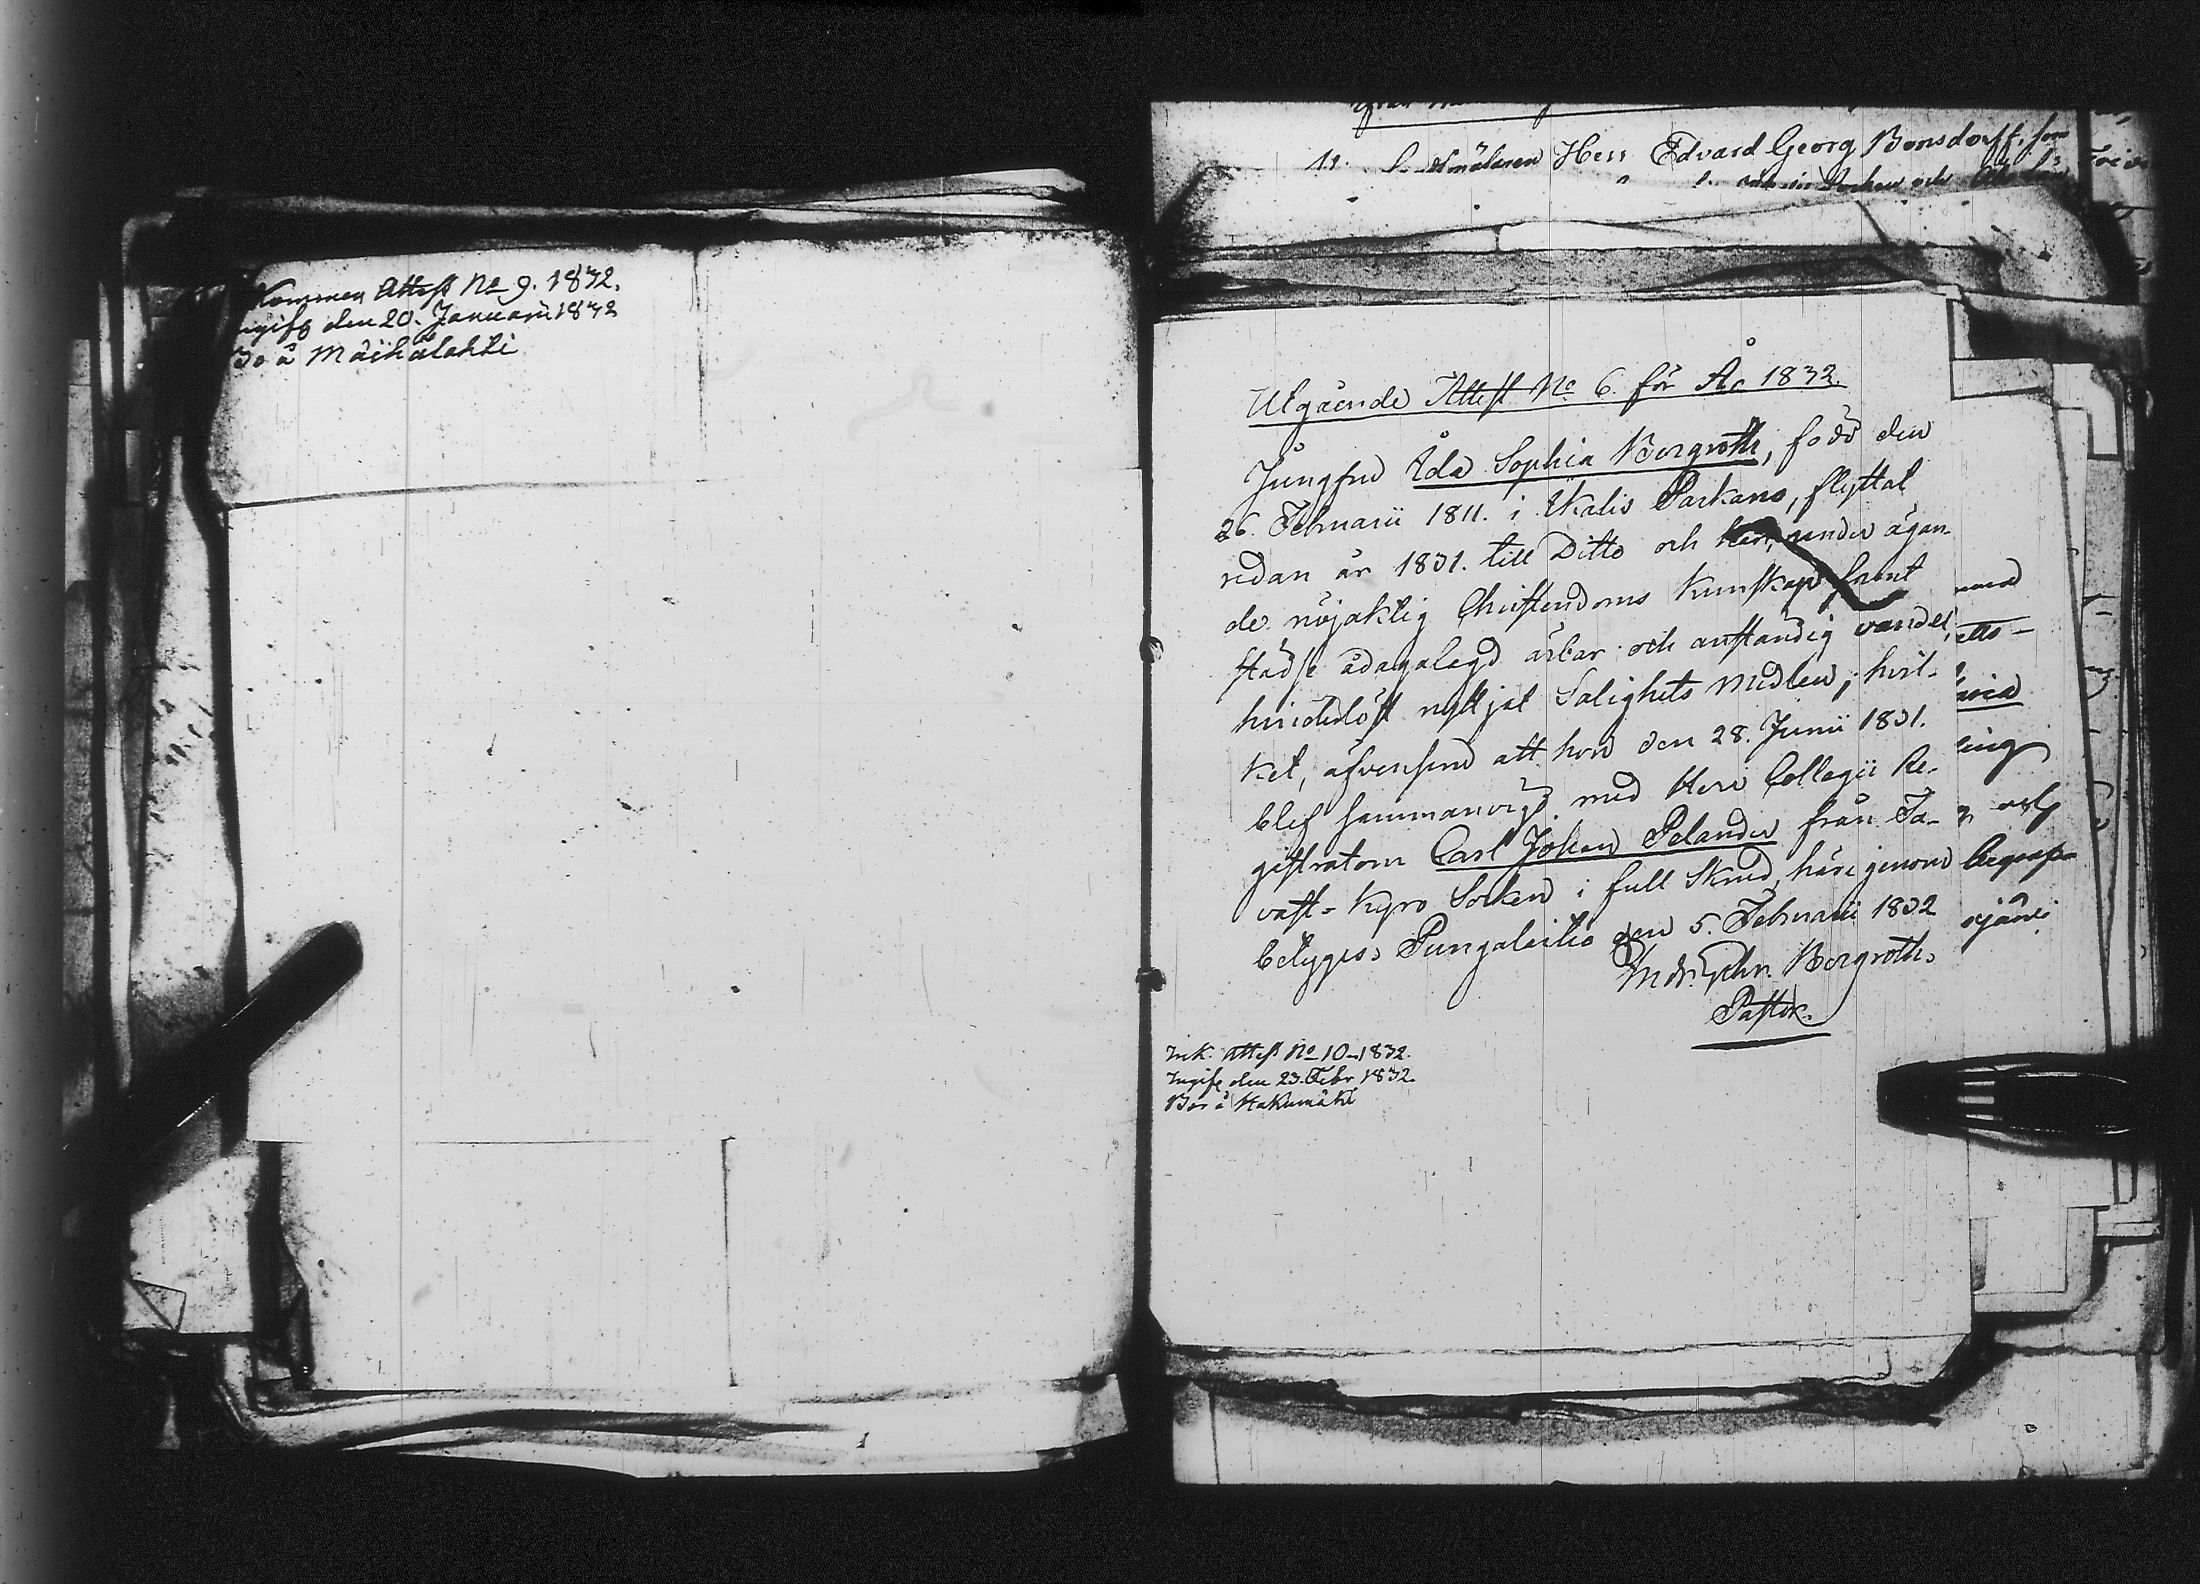 Kommen Attest No 9. 1832.
ingift den 20. Januarii 1832
Bo å Maihalahti
11. Herr Edvard Georg Bonsdorff, som
Utgående Attest No 6. för År 1832.
Jungfru Ida Sophia Bergroth, född den
26. Februarii 1811. i Ikalis Parkano, flyttat
sedan år 1831. till Ditto och har, under ägan-
de nöjaktig Christendoms Kunskap, fromt
städse ådagalagd ärbar och anständig vandel,
hinderlöst nyttjat Salighets Medlen; hvil-
ket, äfvensom att hon den 28. Junii 1831.
blef sammanvigd med Herr Collegii Re-
gistratorn Carl Johan Pelander från Ta-
vast-Kyro Socken i full Skrud, härigenom
betygas, Pungalaitio den 5. Februarii 1832
Bergroth.
Pastor.
Ink. Attest No 10-1832.
Ingift den 23. Febr 1832.
Bor å Hakumäki